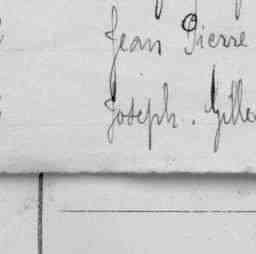 Jean Pierre
Joseph. Gille